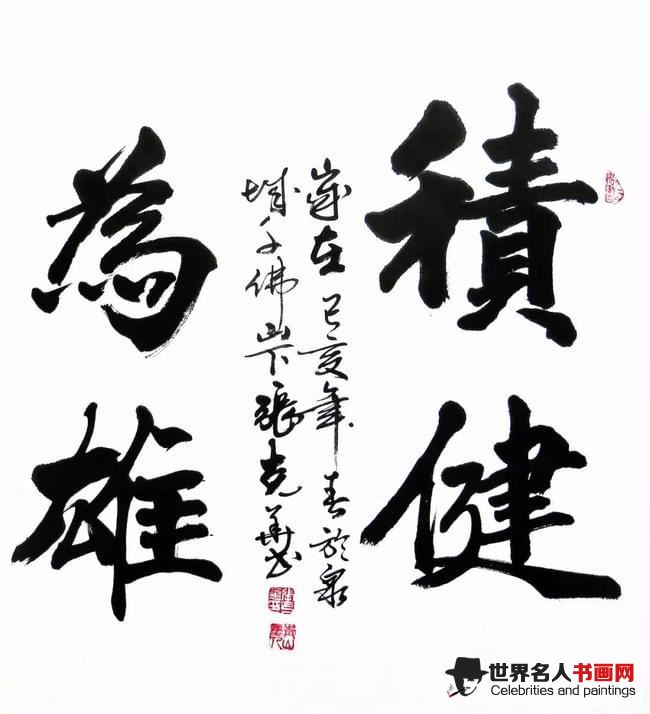 積健
為雄
歲在己亥年春於泉
城千佛山下張克華書
世界名人书画网
Celebrities and paintings